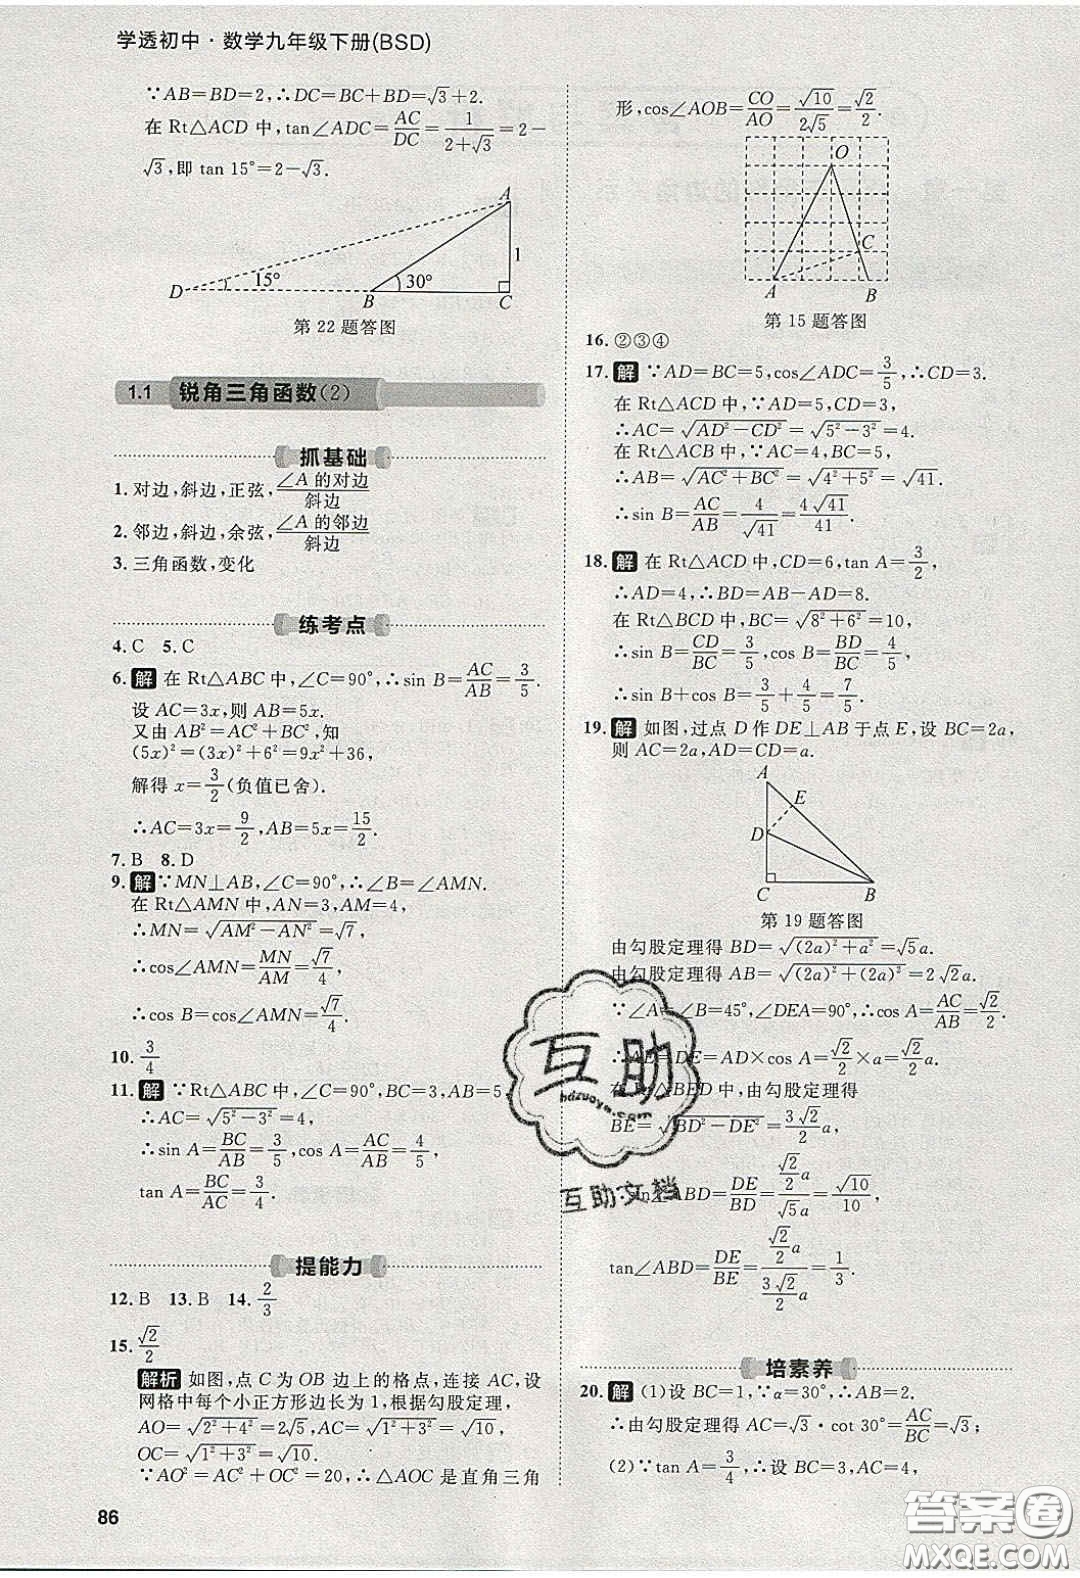 学透初中·数学九年级下册(BSD)
∵AB=BD=2,∴DC=BC+BD=√3+2.
在 Rt△ACD 中,tan∠ADC=AC/DC=1/(2+√3)=2-
√3,即 tan 15°=2-√3.
A
1
15°
30°
D
B
C
第 22 题答图
1.1 锐角三角函数(2)
抓基础
1. 对边,斜边,正弦,∠A 的对边/斜边
2. 邻边,斜边,余弦,∠A 的邻边/斜边
3. 三角函数,变化
练考点
4. C 5. C
6. 解 在 Rt△ABC 中,∠C=90°,∴sin B=AC/AB=3/5.
设 AC=3x,则 AB=5x.
又由 AB²=AC²+BC²,知
(5x)²=(3x)²+6²=9x²+36,
解得 x=3/2(负值已舍).
∴AC=3x=9/2,AB=5x=15/2.
7. B 8. D
9. 解 ∵MN⊥AB,∠C=90°,∴∠B=∠AMN.
在 Rt△AMN 中,AN=3,AM=4,
∴MN=√(AM²-AN²)=√7,
∴cos∠AMN=MN/AM=√7/4,
∴cos B=cos∠AMN=√7/4.
10. 3/4
11. 解 ∵Rt△ABC 中,∠C=90°,BC=3,AB=5,
∴AC=√(5²-3²)=4,
∴sin A=BC/AB=3/5,cos A=AC/AB=4/5,
tan A=BC/AC=3/4.
提能力
12. B 13. B 14. 2/3
15. √2/2
解析 如图,点 C 为 OB 边上的格点,连接 AC,设
网格中每个小正方形边长为 1,根据勾股定理,
AO=√(2²+4²)=2√5,AC=√(1²+3²)=√10,
OC=√(1²+3²)=√10.
∵AO²=AC²+OC²=20,∴△AOC 是直角三角
86
形,cos∠AOB=CO/AO=√10/(2√5)=√2/2.
O
C
A
B
第 15 题答图
16. ②③④
17. 解 ∵AD=BC=5,cos∠ADC=3/5,∴CD=3.
在 Rt△ACD 中,∵AD=5,CD=3,
∴AC=√(AD²-CD²)=√(5²-3²)=4.
在 Rt△ACB 中,∵AC=4,BC=5,
∴AB=√(AC²+BC²)=√(4²+5²)=√41,
∴sin B=AC/AB=4/√41=4√41/41.
18. 解 在 Rt△ACD 中,CD=6,tan A=3/2,
∴AD=4,∴BD=AB-AD=8.
在 Rt△BCD 中,BC=√(8²+6²)=10,
∴sin B=CD/BC=3/5,cos B=BD/BC=4/5,
∴sin B+cos B=3/5+4/5=7/5.
19. 解 如图,过点 D 作 DE⊥AB 于点 E,设 BC=2a,
则 AC=2a,AD=CD=a.
A
E
D
C
B
第 19 题答图
由勾股定理得 BD=√((2a)²+a²)=√5a.
由勾股定理得 AB=√((2a)²+(2a)²)=2√2a.
∵∠A=∠B=45°,∠DEA=90°,cos A=AC/AB=√2/2.
∴AE=DE=AD×cos A=√2/2×a=√2/2 a.
在 Rt△BED 中,由勾股定理得
BE=√(BD²-DE²)=3√2/2 a,
∴sin∠ABD=DE/BD=(√2/2 a)/(√5a)=√10/10,
tan∠ABD=DE/BE=(√2/2 a)/(3√2/2 a)=1/3.
培素养
20. 解 (1)设 BC=1,∵α=30°,∴AB=2.
∴由勾股定理得 AC=√3·cot 30°=AC/BC=√3;
(2)∵tan A=3/4,∴设 BC=3,AC=4,
互助
hdzuoye.com
互助文档
答案圈
MXQE.COM